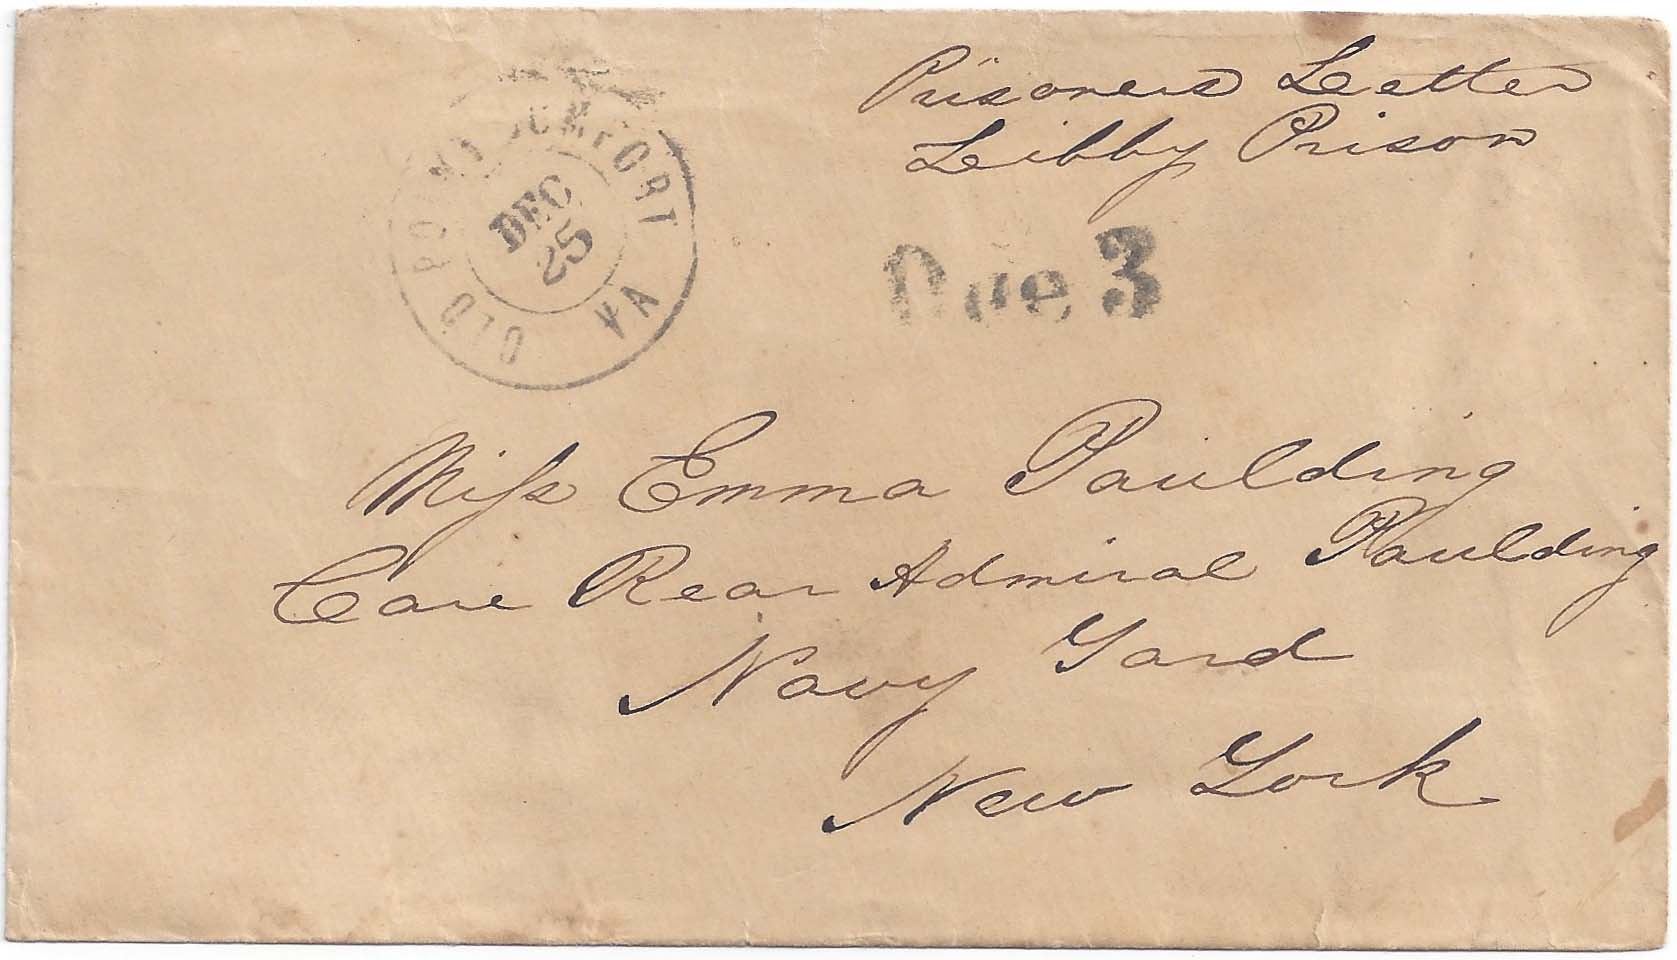 Prisoners Letter
Leibby Prison
OLD POINT COMFORT VA
DEC
25
Due 3
Miſs Emma Paulding
Care Rear Admiral Paulding
Navy Yard
New York